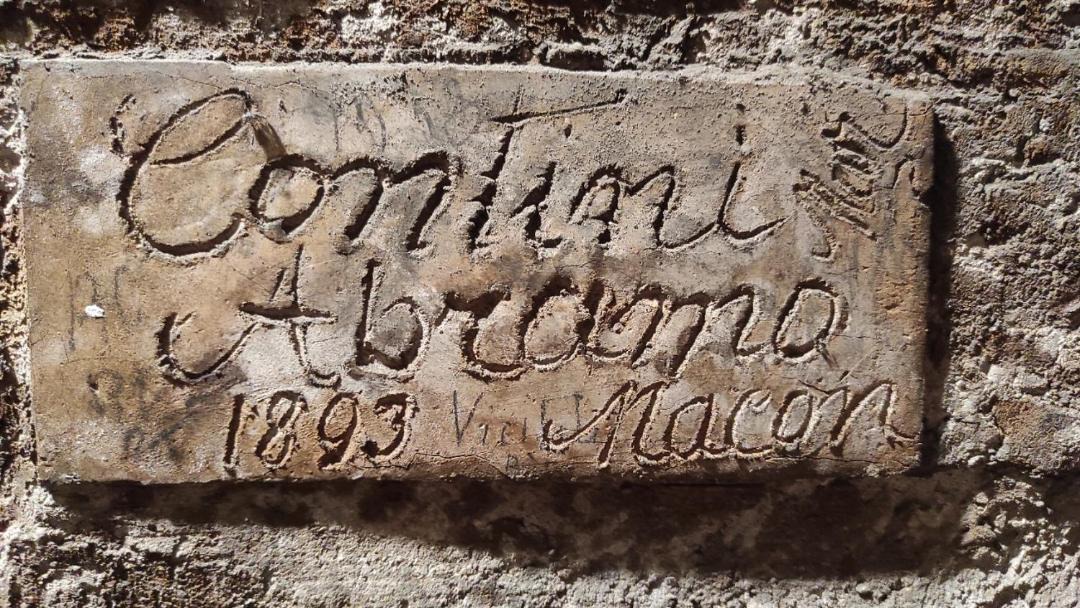 Contini
Abramo
1893 Macon